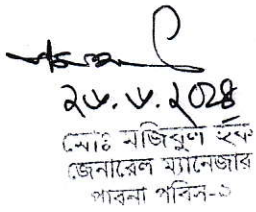 ২৬.৬.২০২৪
মোঃ মজিবুল হক
জেনারেল ম্যানেজার
পাবনা পবিস-১